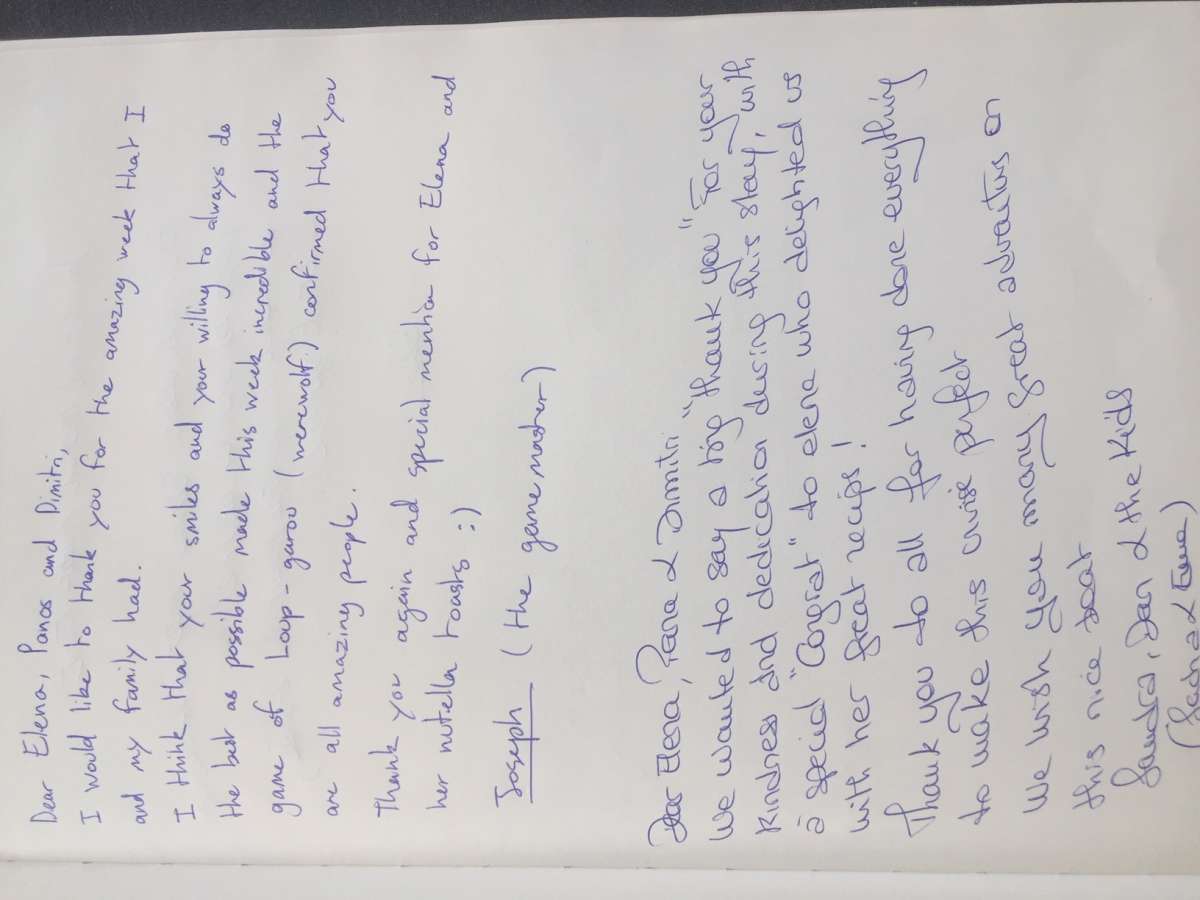 Dear Elena, Panos and Dimitri,
I would like to thank you for the amazing week that I
and my family had.
I think that your smiles and your willing to always do
the best as possible made this week incredible and the
game of Loup-garou (werewolf) confirmed that you
are all amazing people.
Thank you again and special mention for Elena and
her nutella toasts :)
Joseph (the gamemaster)
Dear Elena, & Dimitri
We wanted to say a big "thank you" for your
kindness and dedication during this stay, with
a special "Congrat" to elena who delighted us
with her great recips!
Thank you to all for having done everything
to make this cruise perfect
We wish you many great on
this nice boat
Sandra, Dan & the Kids